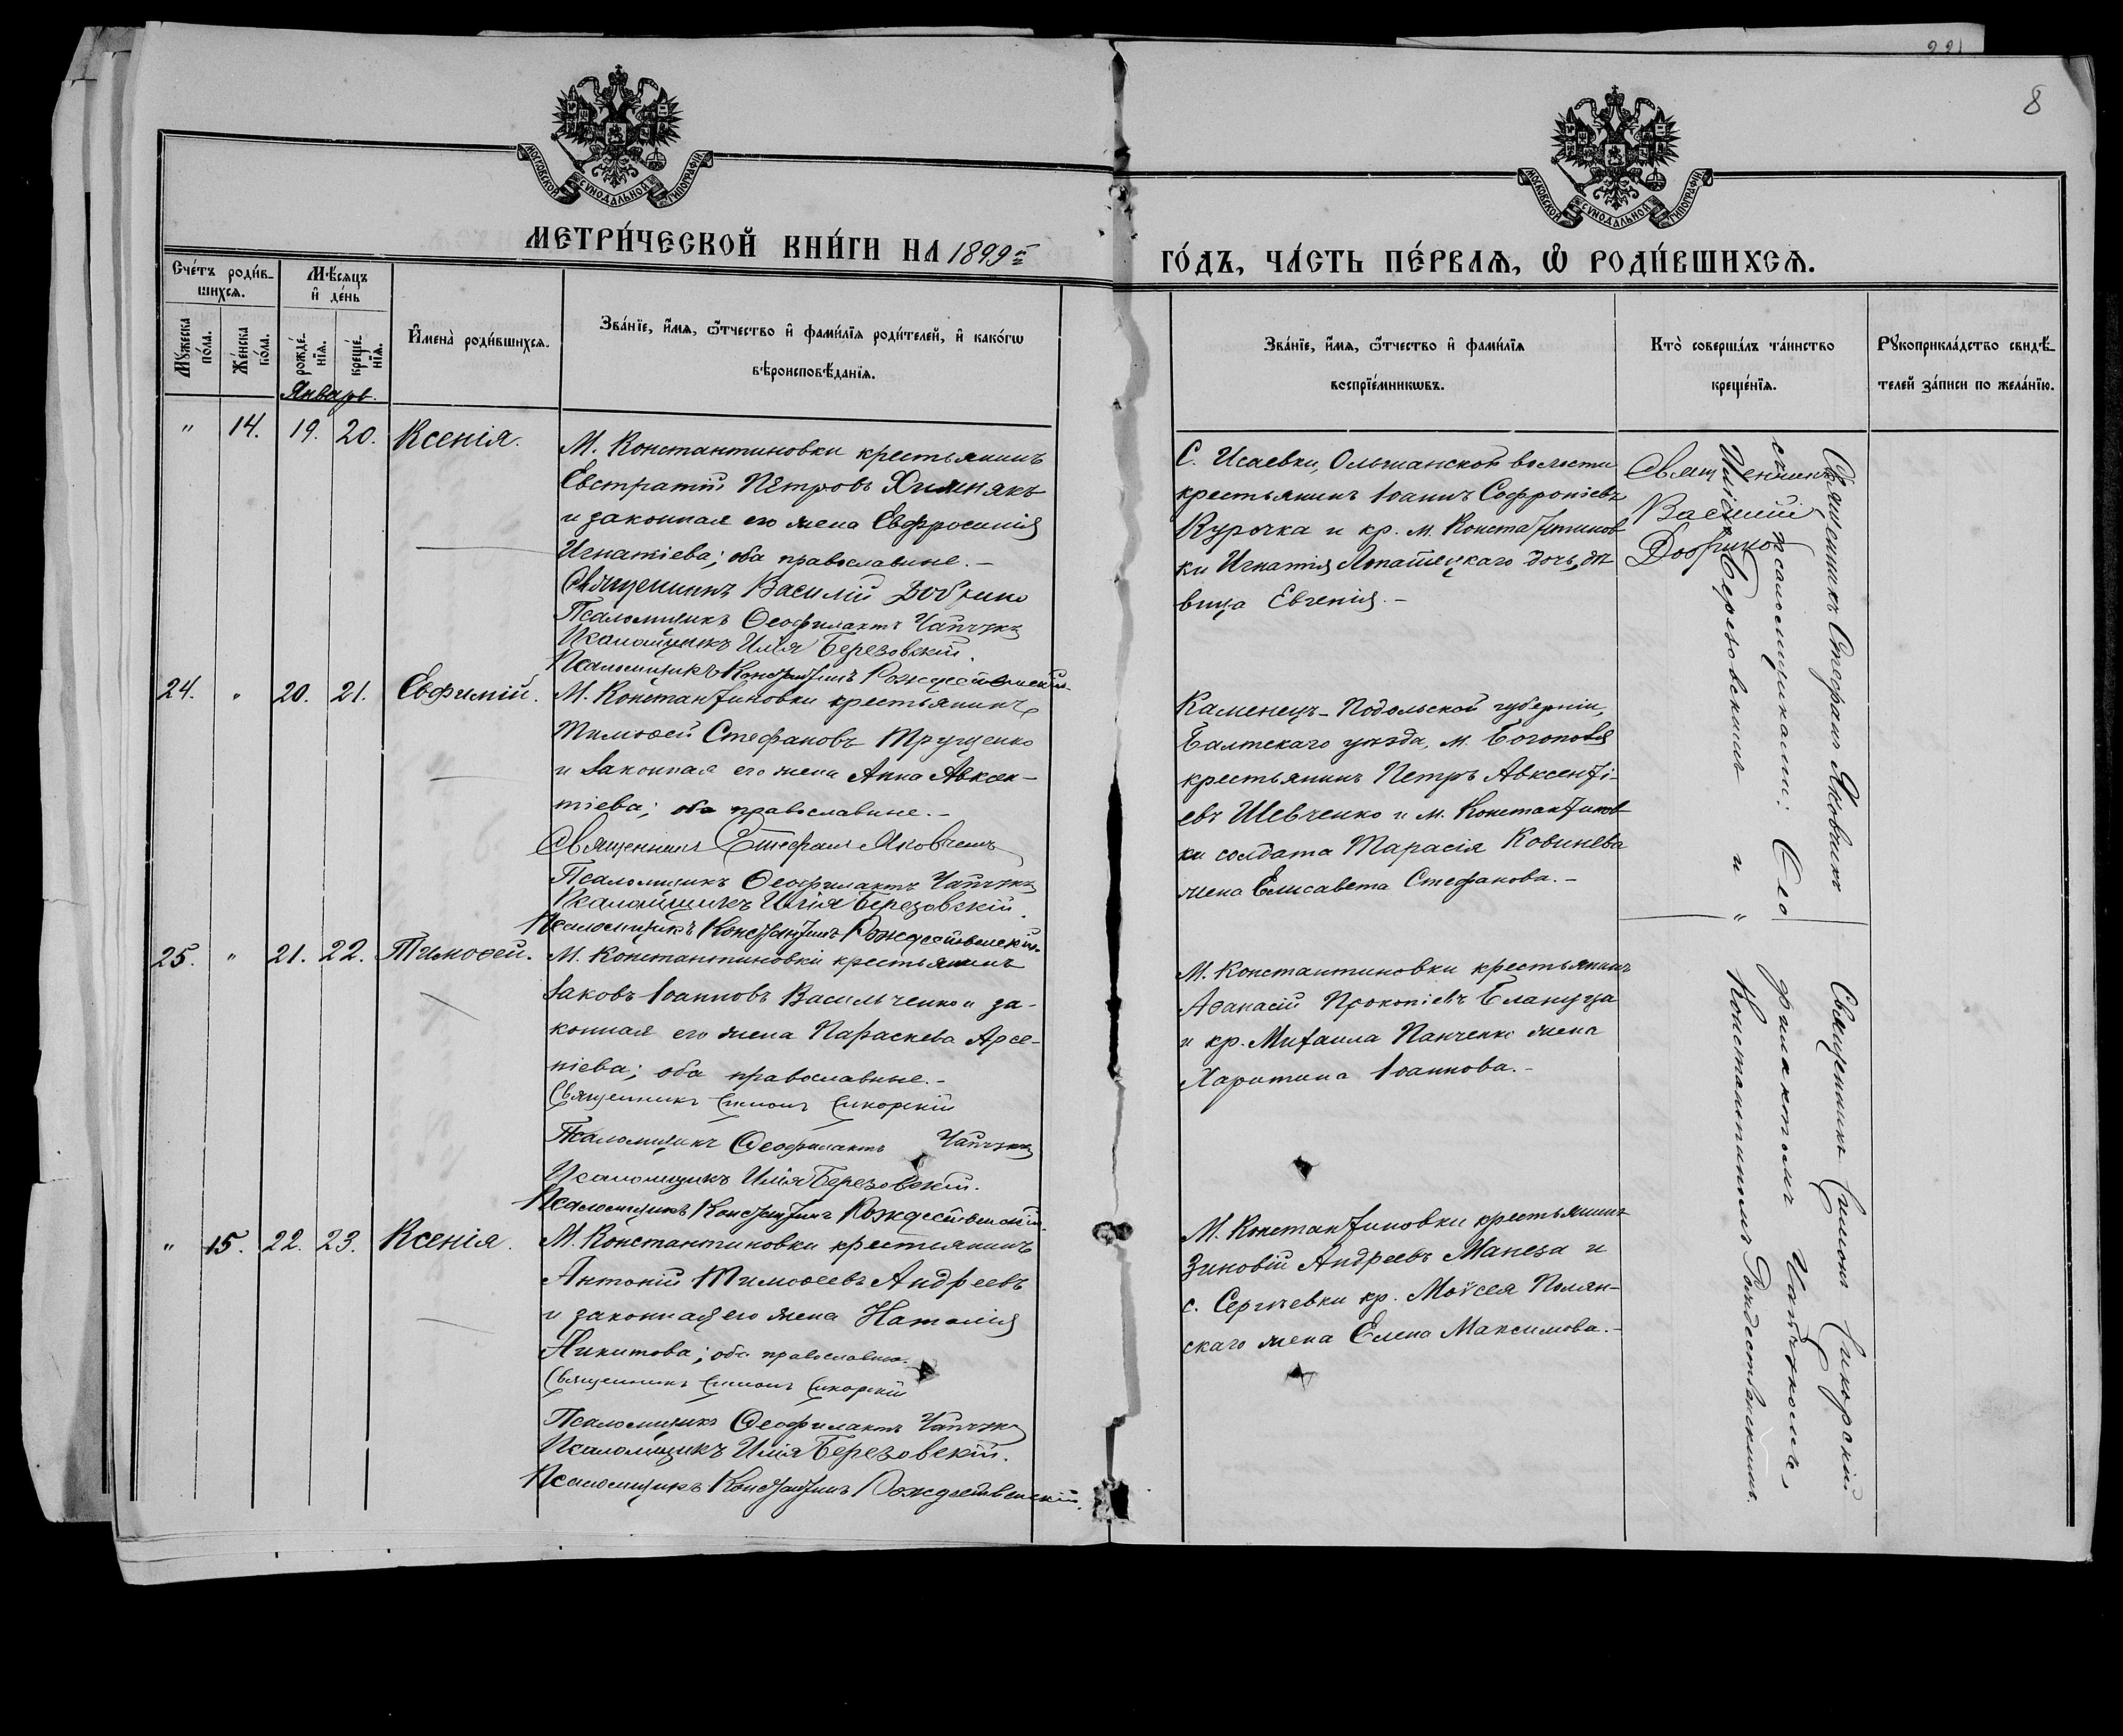 221
8
МОСКОВСКОЙ СѴНОДАЛЬНОЙ ТИПОГРАФІИ.
МОСКОВСКОЙ СѴНОДАЛЬНОЙ ТИПОГРАФІИ.
МЕТРИ́ЧЕСКОЙ КНИ́ГИ НА 1899й
ГО́ДЪ, ЧА́СТЬ ПЕ́РВАѦ, Ѡ РОДИ́ВШИХСѦ.
Сче́тъ роди́в-
шихсѧ.
Мѣ́сѧцъ
и҆ де́нь
Мꙋ́жеска по́ла.
Же́нска по́ла.
рожде́-нїѧ.
креще́-нїѧ.
Январь.
И҆мена̀ роди́вшихсѧ.
Зва́нїе, и҆́мѧ, ѻ҆́тчество и҆ фами́лїѧ роди́телей, и҆ како́гѡ
вѣроисповѣ́данїѧ.
Зва́нїе, и҆́мѧ, ѻ҆́тчество и҆ фами́лїѧ
воспрїе́мникѡвъ.
Кто̀ соверша́лъ та́инство
креще́нїѧ.
Рꙋкоприкла́дство свидѣ́-
телей за́писи по жела́нїю.
" 14. 19. 20. Ксенія.
М. Константиновки крестьянинъ
Евстратій Петровъ Химнякъ
и законная его жена Евфросинія
Игнатіева; оба православные.-
Священникъ Василій Добрино
Псаломщикъ Ѳеофилактъ
Псаломщикъ Илія Березовскій.
Псаломщикъ Константинъ Рождественскій.
С. Исаевки, Ольшанской волости
крестьянинъ Іоаннъ Софроніевъ
Курочка и кр. м. Константинов
ки Игнатія дочь, дѣ
вица Евгенія.-
Священникъ
Василій
Добрино
24. " 20. 21. Евфимій.
М. Константиновки крестьянинъ
Тимоѳей Стефановъ Трущенко
и законная его жена Анна Авксен-
тіева; оба православные.-
Священникъ Стефанъ Яковчинъ
Псаломщикъ Ѳеофилактъ
Псаломщикъ Илія Березовскій.
Псаломщикъ Константинъ Рождественскій.
Каменецъ-Подольской губерніи,
Балтскаго уѣзда, м. Богополя
крестьянинъ Петръ Авксенті-
евъ Шевченко и м. Константинов
ки солдата Тарасія Ковинева
жена Елисавета Стефанова.-
25. " 21. 22. Тимоѳей.
М. Константиновки крестьянинъ
Іаковъ Іоанновъ Васильченко и за-
конная его жена Параскева Арсе-
ніева; оба православные.-
Священникъ Симонъ Сикорскій
Псаломщикъ Ѳеофилактъ
Псаломщикъ Илія Березовскій.
Псаломщикъ Константинъ Рождественскій.
М. Константиновки крестьянинъ
Аѳанасій Прокопіевъ Блануца
и кр. Михаила Панченко жена
Харитина Іоаннова.-
" 15. 22. 23. Ксенія.
М. Константиновки крестьянинъ
Антоній Тимоѳеевъ Андреевъ
и законная его жена Наталія
Никитова; оба православные.
Священникъ Симонъ Сикорскій
Псаломщикъ Ѳеофилактъ
Псаломщикъ Илія Березовскій.
Псаломщикъ Константинъ Рождественскій.
М. Константиновки крестьянинъ
Зиновій Андреевъ Манеза и
с. Сергѣевки кр. Моѵсея Полян-
скаго жена Елена Максимова.-
Священникъ Стефанъ Яковчинъ Священникъ Симонъ Сикорскій
съ псаломщиками: Ѳеофилактомъ
Иліею Березовскимъ и Константиномъ Рождественскимъ.